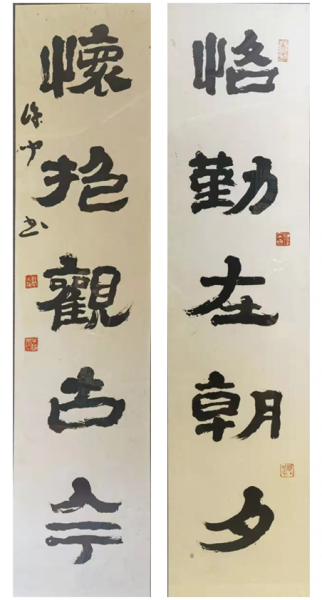 恪勤在朝夕
懷抱觀古今
书